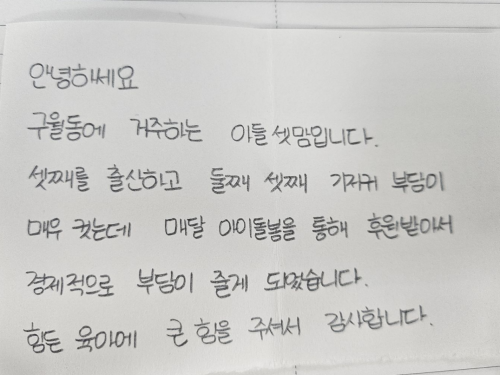 안녕하세요
구월동에 거주하는 아들셋맘입니다.
셋째를 출산하고 둘째 셋째 기저귀 부담이
매우 컷는데 매달 아이돌봄을 통해 후원받아서
경제적으로 부담이 줄게 되었습니다.
힘든 육아에 큰 힘을 주셔서 감사합니다.